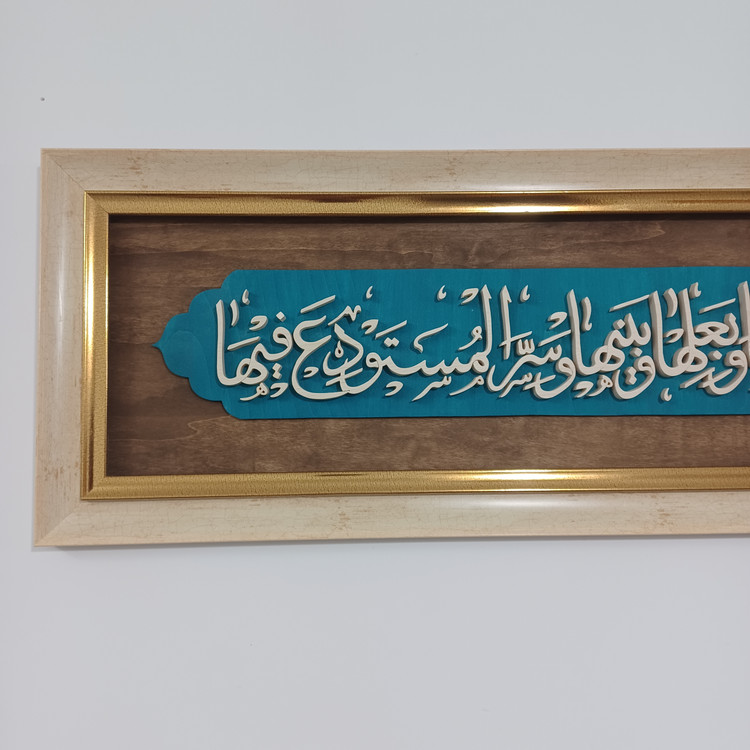 وَبَعْلِها وَبَنيها وَسِرِّ الْمُسْتَوْدَعِ فيها